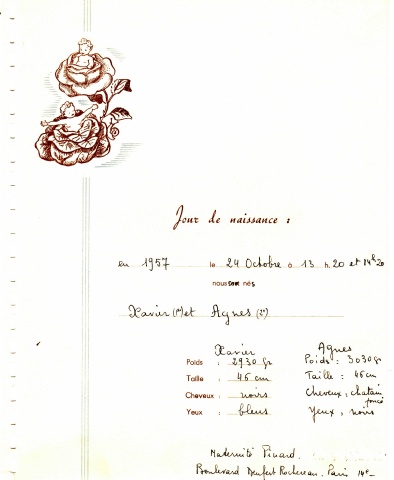 Jour de naissance :
en 1957 le 24 Octobre à 13 h. 20 et 14h20
nous sont nés
Xavier (1er) et Agnes (2e)
Xavier Agnes
Poids : 2930 gr Poids : 3030 gr
Taille : 46 cm Taille : 46 cm
Cheveux : noirs Cheveux : chatain foncé
Yeux : bleus Yeux : noirs
Maternité Pinard.
Boulevard Denfert Rochereau, Paris 14e